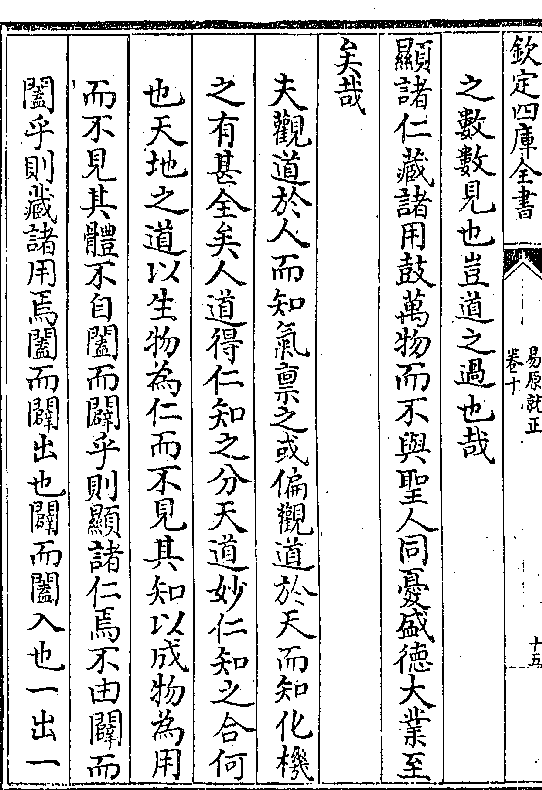 欽定四庫全書
易原就正
卷十
十五
之數數見也豈道之過也哉
顯諸仁藏諸用鼓萬物而不與聖人同憂盛德大業至
矣哉
夫觀道於人而知氣禀之或偏觀道於天而知化機
之有甚全矣人道得仁知之分天道妙仁知之合何
也天地之道以生物為仁而不見其知以成物為用
而不見其體不自闔而闢乎則顯諸仁焉不由闢而
闔乎則藏諸用焉闔而闢出也闢而闔入也一出一